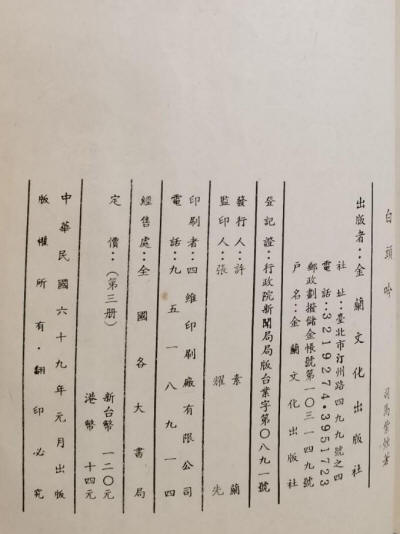 白頭吟
司馬紫煙著
出版者：金蘭文化出版社
社址：臺北市汀州路四九九號之四
電話：3219274•3951723
郵政劃撥儲金帳號第一〇三一四九號
戶名：金蘭文化出版社
登記證：行政院新聞局局版台業字第〇八九一號
發行人：許素蘭
監印人：張耀先
印刷者：四維印刷廠有限公司
電話：九五一八九一四
經售處：全國各大書局
定價：（第三册）新台幣一二〇元
港幣十四元
中華民國六十九年元月出版
版權所有•翻印必究